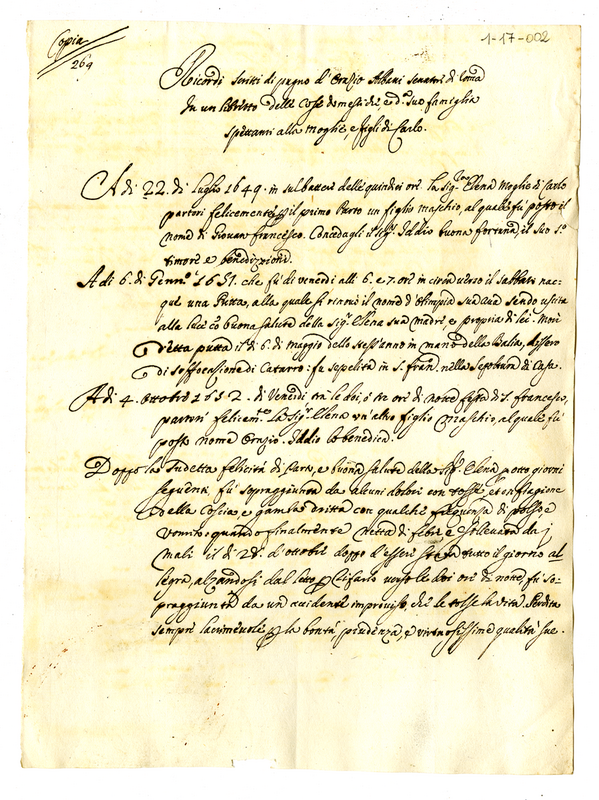 1-17-002
Copia
264
Ricordi scritti di pugno d'Orazio Albani Senatore di Roma
In un libretto delle Cose domestiche, ed. sua famiglia
spettanti alla Moglie, e figli di Carlo.
A dì 22. di Luglio 1649. in sul battere delle quindici ore la Sig.ra Elena Moglie di Carlo
partorì felicemente il primo Parto un figlio maschio, al quale fù posto il
nome di Giovan francesco. Concedagli il Sig.e Iddio buona fortuna, il suo S.o
timore e benedizzione.
A dì 6. di Genn.o 1651. che fù di venerdì alli 6. e 7. ore in circa verso il sabbato nac-
que una Putta, alla quale si rinovò il nome d'Olimpia sua Ava sendo uscita
alla luce cō buona salute della Sig.ra Elena sua madre, e propria di lei. Morì
detta putta il dì 6. di Maggio dello stess'anno in mano della Balia, dissero
di soffocazione di Catarro. fu sepelita in S. fran.co nella Sepoltura di Casa.
A dì 4. Ottobre 1652. di Venerdì tre le doi, o tre ore di notte festa di S. francesco,
partorì felicem.te La Sig.ra Elena un'altro figlio Maschio, al quale fù
posto nome Orazio. Iddio lo benedica.
Doppo la sudetta felicità di Parto, e buona salute della Sig.ra Elena, p otto giorni
seguenti, fù sopraggiunta da alcuni dolori con tosse, et enfiagione
della Coscia, e gamba dritta con qualche frequenza di polso, e
Vomito; quando finalmente netta di febre e sollevata da i
mali il dì 28. d'ottobre doppo d'essere stata tutto il giorno al-
legra, alzandosi dal letto p rifarlo verso le doi ore di notte, fù so-
praggiunta da un accidente improviso, che le tolse la vita. Perdita
sempre lacrimevole p la bontà, prudenza, e virtuosissime qualità sue.